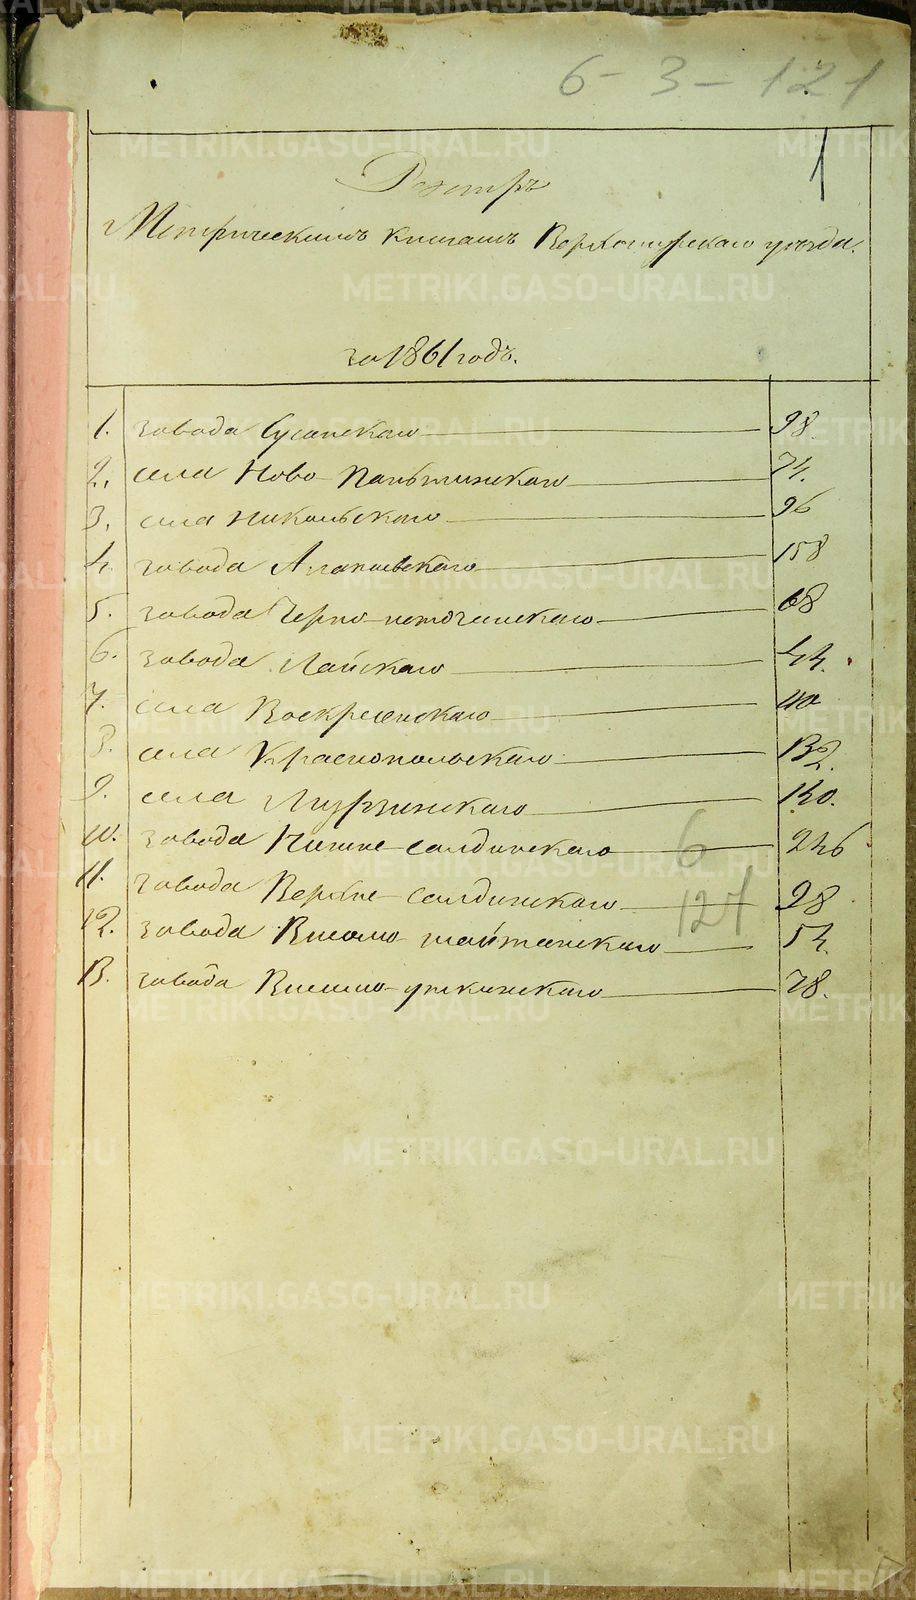 6-3-121
1
Реэстръ
Метрическимъ книгамъ Верхотурскаго уѣзда.
за 1861 годъ.
1. завода Сусанскаго 98.
2. села Ново-Паньшинскаго 74.
3. села Никольскаго 96
4. завода Алапаевскаго 158
5. завода Черно-источинскаго 68
6. завода Лайскаго 44.
7. села Воскресенскаго 40
8. села Краснопольскаго 132.
9. села Мурзинскаго 140.
10. завода Нижне-салдинскаго 6 246
11. завода Верхне-салдинскаго 98
127
12. завода Висимо-шайтанскаго 54.
13. завода Висимо-уткинскаго 78.
METRIKI.GASO-URAL.RU